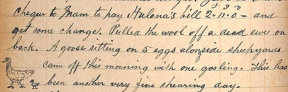 Cheque to Mam to pay Hulena's bill 2-11-0 - and
get some change. Pulled the wool off a dead ewe on
back. A goose sitting on 5 eggs alongside sheepyards
came off this morning with one gosling. This has
been another very fine shearing day.